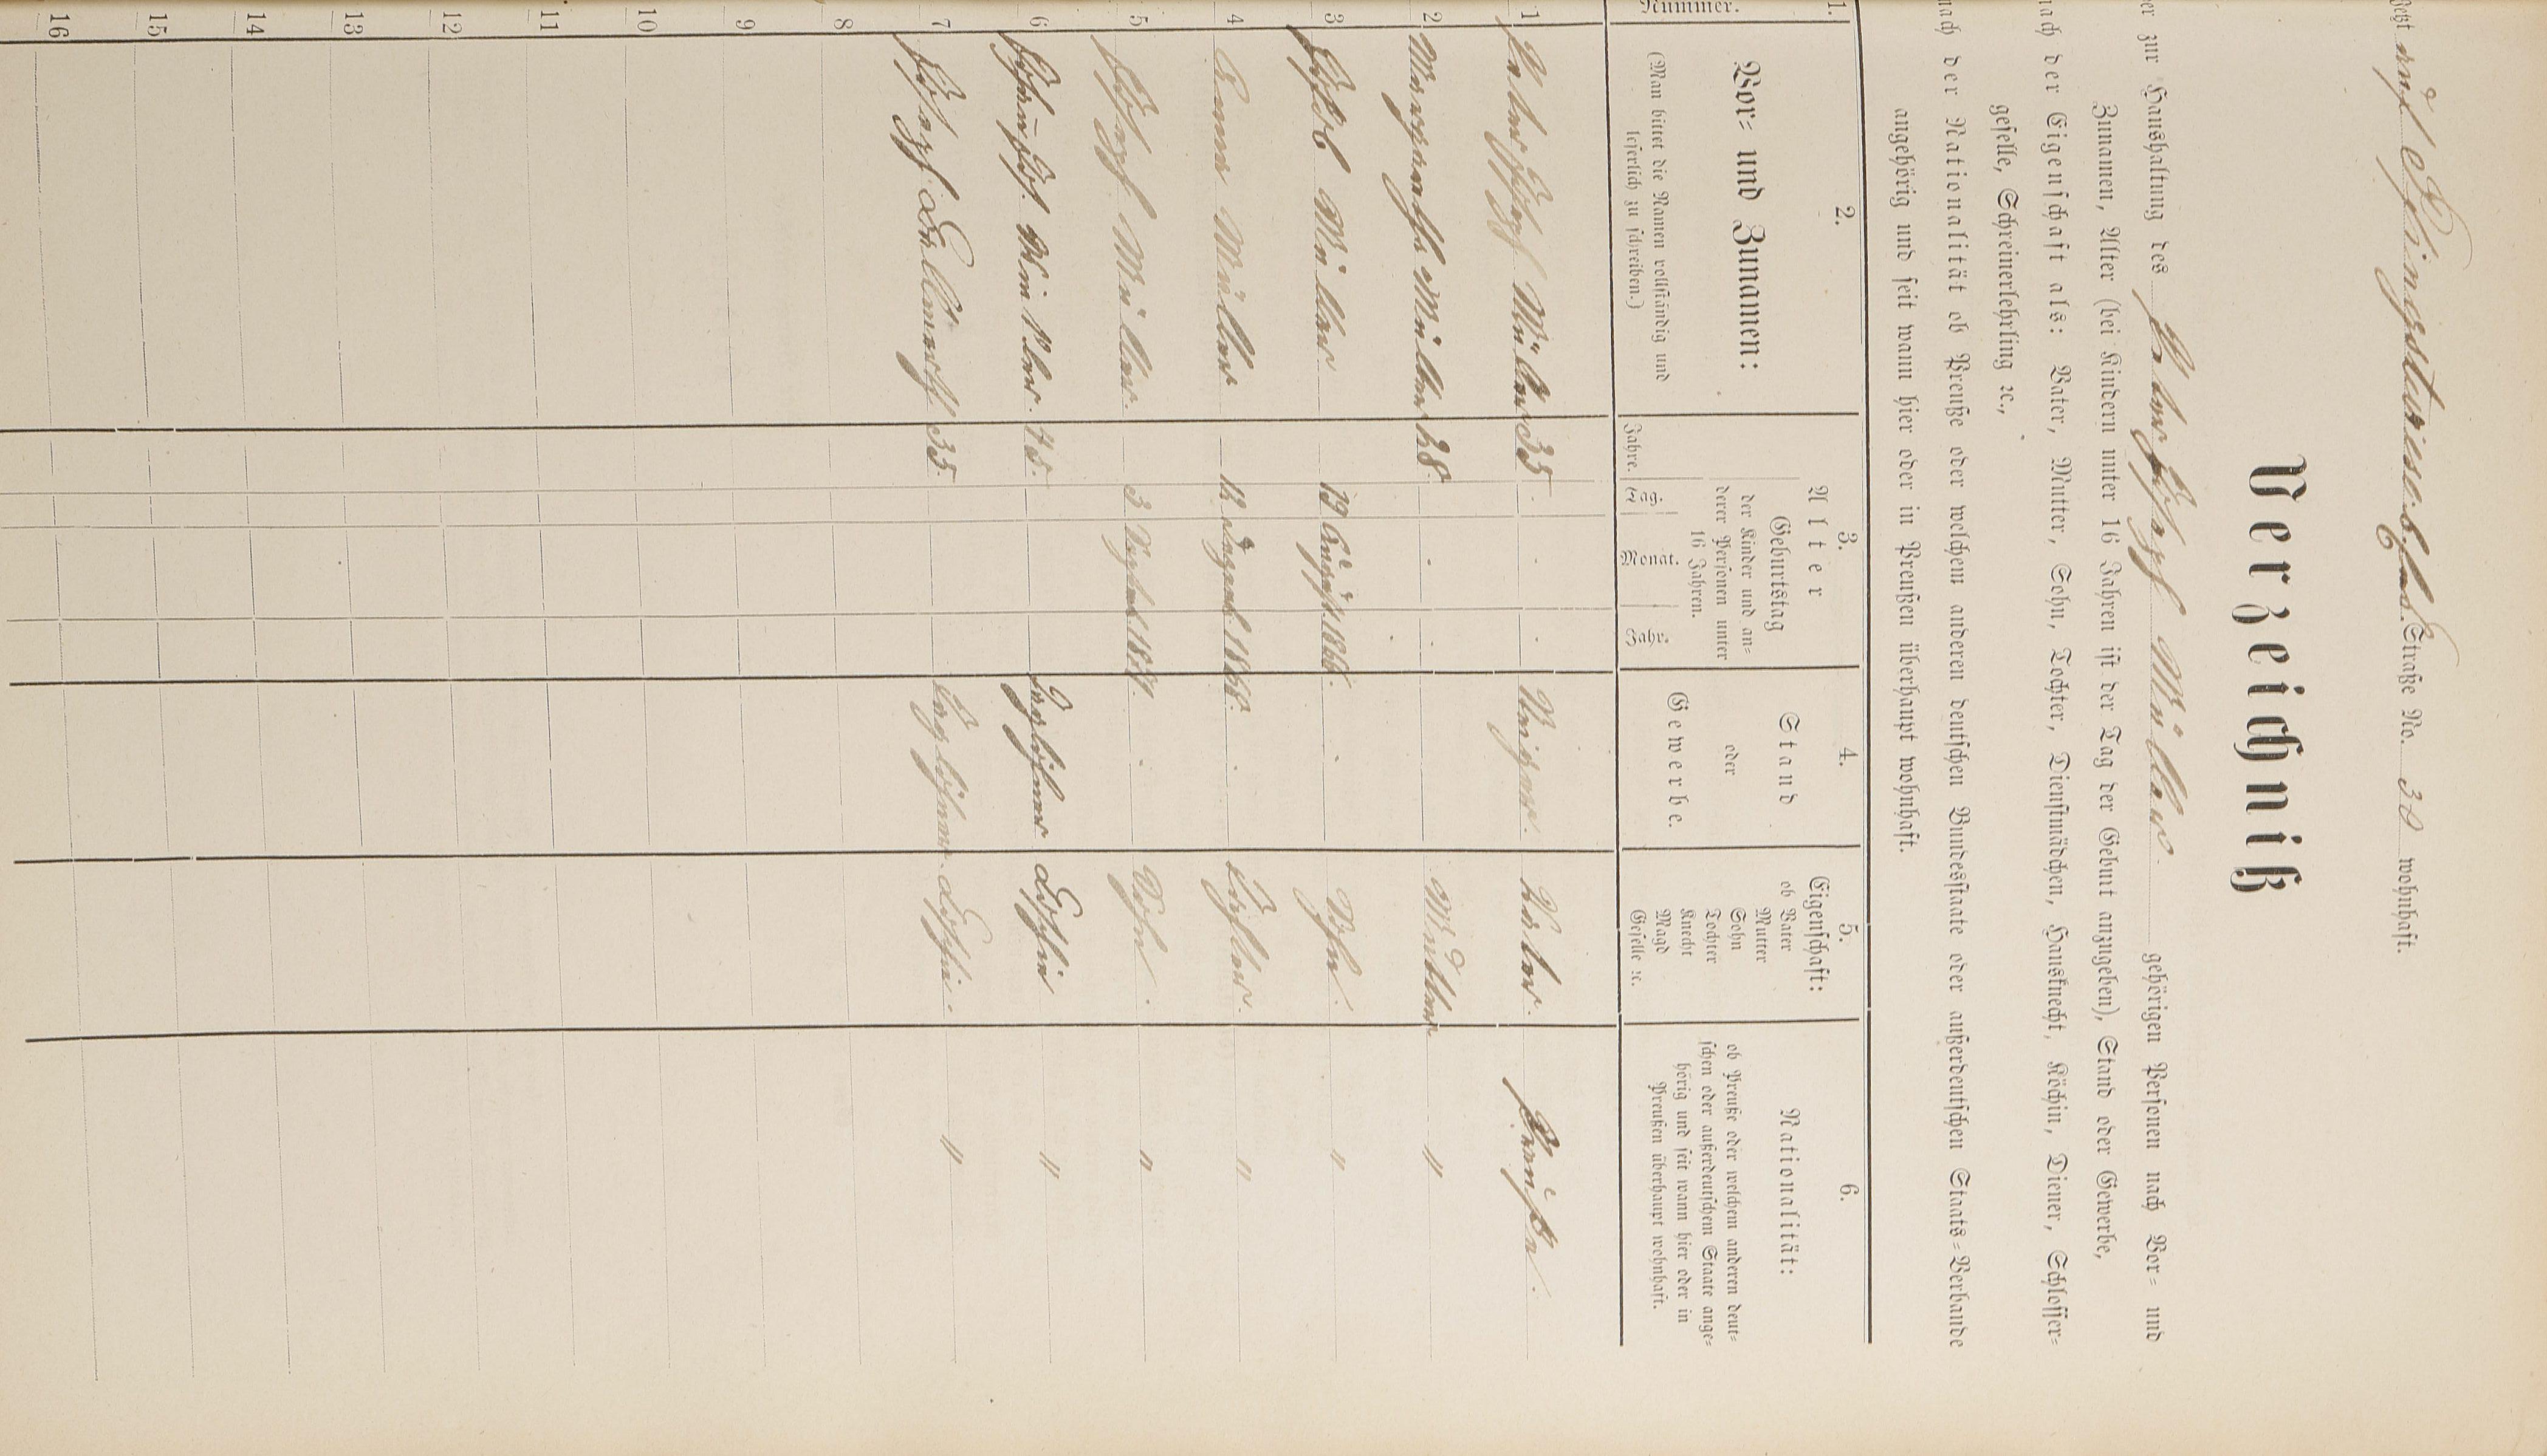 jetzt auf Straße No. 30 wohnhaft.
Verzeichniß
er zur Haushaltung des Peter Joseph Müller gehörigen Personen nach Vor- und
Zunamen, Alter (bei Kindern unter 16 Jahren ist der Tag der Geburt anzugeben), Stand oder Gewerbe,
nach der Eigenschaft als: Vater, Mutter, Sohn, Tochter, Dienstmädchen, Hausknecht, Köchin, Diener, Schlosser-
geselle, Schreinerlehrling ꝛc.,
nach der Nationalität ob Preuße oder welchem anderen deutschen Bundesstaate oder außerdeutschen Staats-Verbande
angehörig und seit wann hier oder in Preußen überhaupt wohnhaft.
1. 2. 3. 4. 5. 6.
Nummer.
Vor- und Zunamen:
(Man bittet die Namen vollständig und
leserlich zu schreiben.)
Alter
Geburtstag
der Kinder und an-
derer Personen unter
16 Jahren.
Jahre. Tag. Monat. Jahr.
Stand
oder
Gewerbe.
Eigenschaft:
ob Vater
Mutter
Sohn
Tochter
Knecht
Magd
Geselle ꝛc.
Nationalität:
ob Preuße oder welchem anderen deut-
schen oder außerdeutschem Staate ange-
hörig und seit wann hier oder in
Preußen überhaupt wohnhaft.
1 Peter Joseph Müller 35 Vater. Preuße.
2 Margaretha Müller 28. Mutter "
3 Jakob Müller 19 August. 1866. Sohn. "
4 Anna Müller 12 1868. Tochter. "
5 Joseph Müller. 3 Sohn. "
6 Müller. 45. Taglöhner "
7 Joseph 35. Taglöhner. "
8
9
10
11
12
13
14
15
16